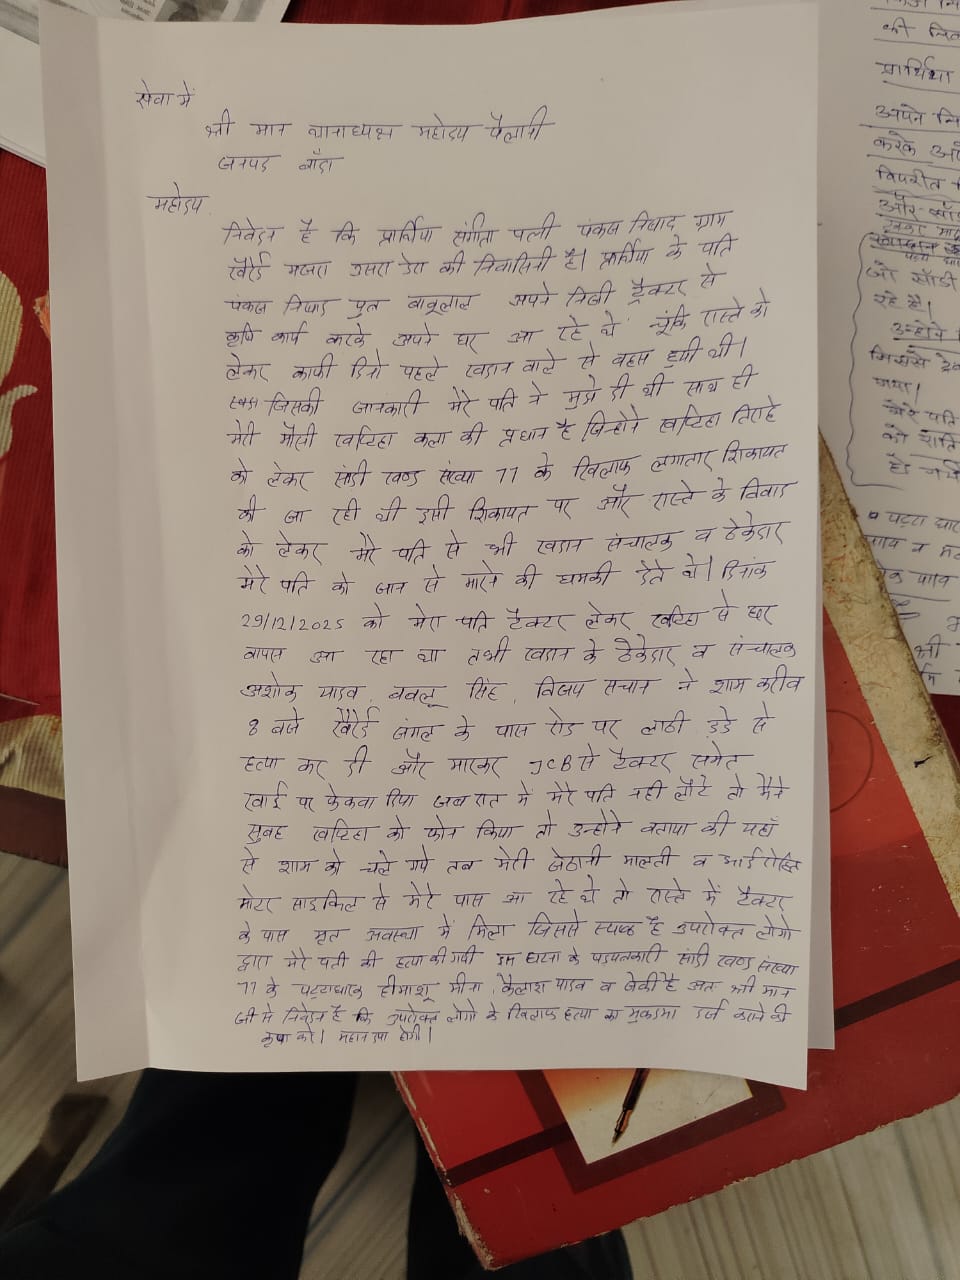 सेवा में
श्री मान थानाध्यक्ष महोदय पैलानी
जनपद बाँदा
महोदय
निवेदन है कि प्रार्थिया संगीता पत्नी पंकज निषाद ग्राम
खैरेई मजरा उसरा डेरा की निवासिनी है। प्रार्थिया के पति
पंकज निषाद पुत्र बाबूलाल अपने निजी ट्रैक्टर से
कृषि कार्य करके अपने घर आ रहे थे चूंकि रास्ते को
लेकर काफी दिनो पहले खदान वाले से बहस हुयी थी।
जिसकी जानकारी मेरे पति ने मुझे दी थी साथ ही
मेरी मौसी खप्टिहा कला की प्रधान है जिन्होने खप्टिहा तिराहे
को लेकर सांडी खण्ड संख्या 77 के खिलाफ लगातार शिकायत
की जा रही थी इसी शिकायत पर और रास्ते के विवाद
को लेकर मेरे पति से भी खदान संचालक व ठेकेदार
मेरे पति को जान से मारने की धमकी देते थे। दिनांक
29/12/2025 को मेरा पति टैक्टर लेकर खप्टिहा से घर
वापस आ रहा था तभी खदान के ठेकेदार व संचालक
अशोक यादव, बबलू सिंह, विजय सचान ने शाम करीब
8 बजे खैरेई जंगल के पास रोड पर लाठी डंडे से
हत्या कर दी और मारकर JCB से टैक्टर समेत
खाई पर फेकवा दिया जब रात में मेरे पति नही लौटे तो मैने
सुबह खप्टिहा को फोन किया तो उन्होने बताया की यहाँ
से शाम को चले गये तब मेरी जेठानी मालती व भाई रोहित
मोटर साइकिल से मेरे पास आ रहे थे तो रास्ते में टैक्टर
के पास मृत अवस्था में मिला जिससे स्पष्ट है उपरोक्त लोगो
द्वारा मेरे पती की हत्या की गयी इस घटना के षडयंत्रकारी सांडी खण्ड संख्या
77 के पट्टाधारक हीमाशू मीना, कैलाश यादव व जेकी है अतः श्री मान
जी से निवेदन है कि उपरोक्त लोगो के खिलाफ हत्या का मुकदमा दर्ज कराने की
कृपा करे। महान दया होगी।
की
प्रार्थिया
अपने
करके
विपरीत
और
जो सांडी
रहे है।
उन्होने
जिससे
गया।
मेरे पति
को